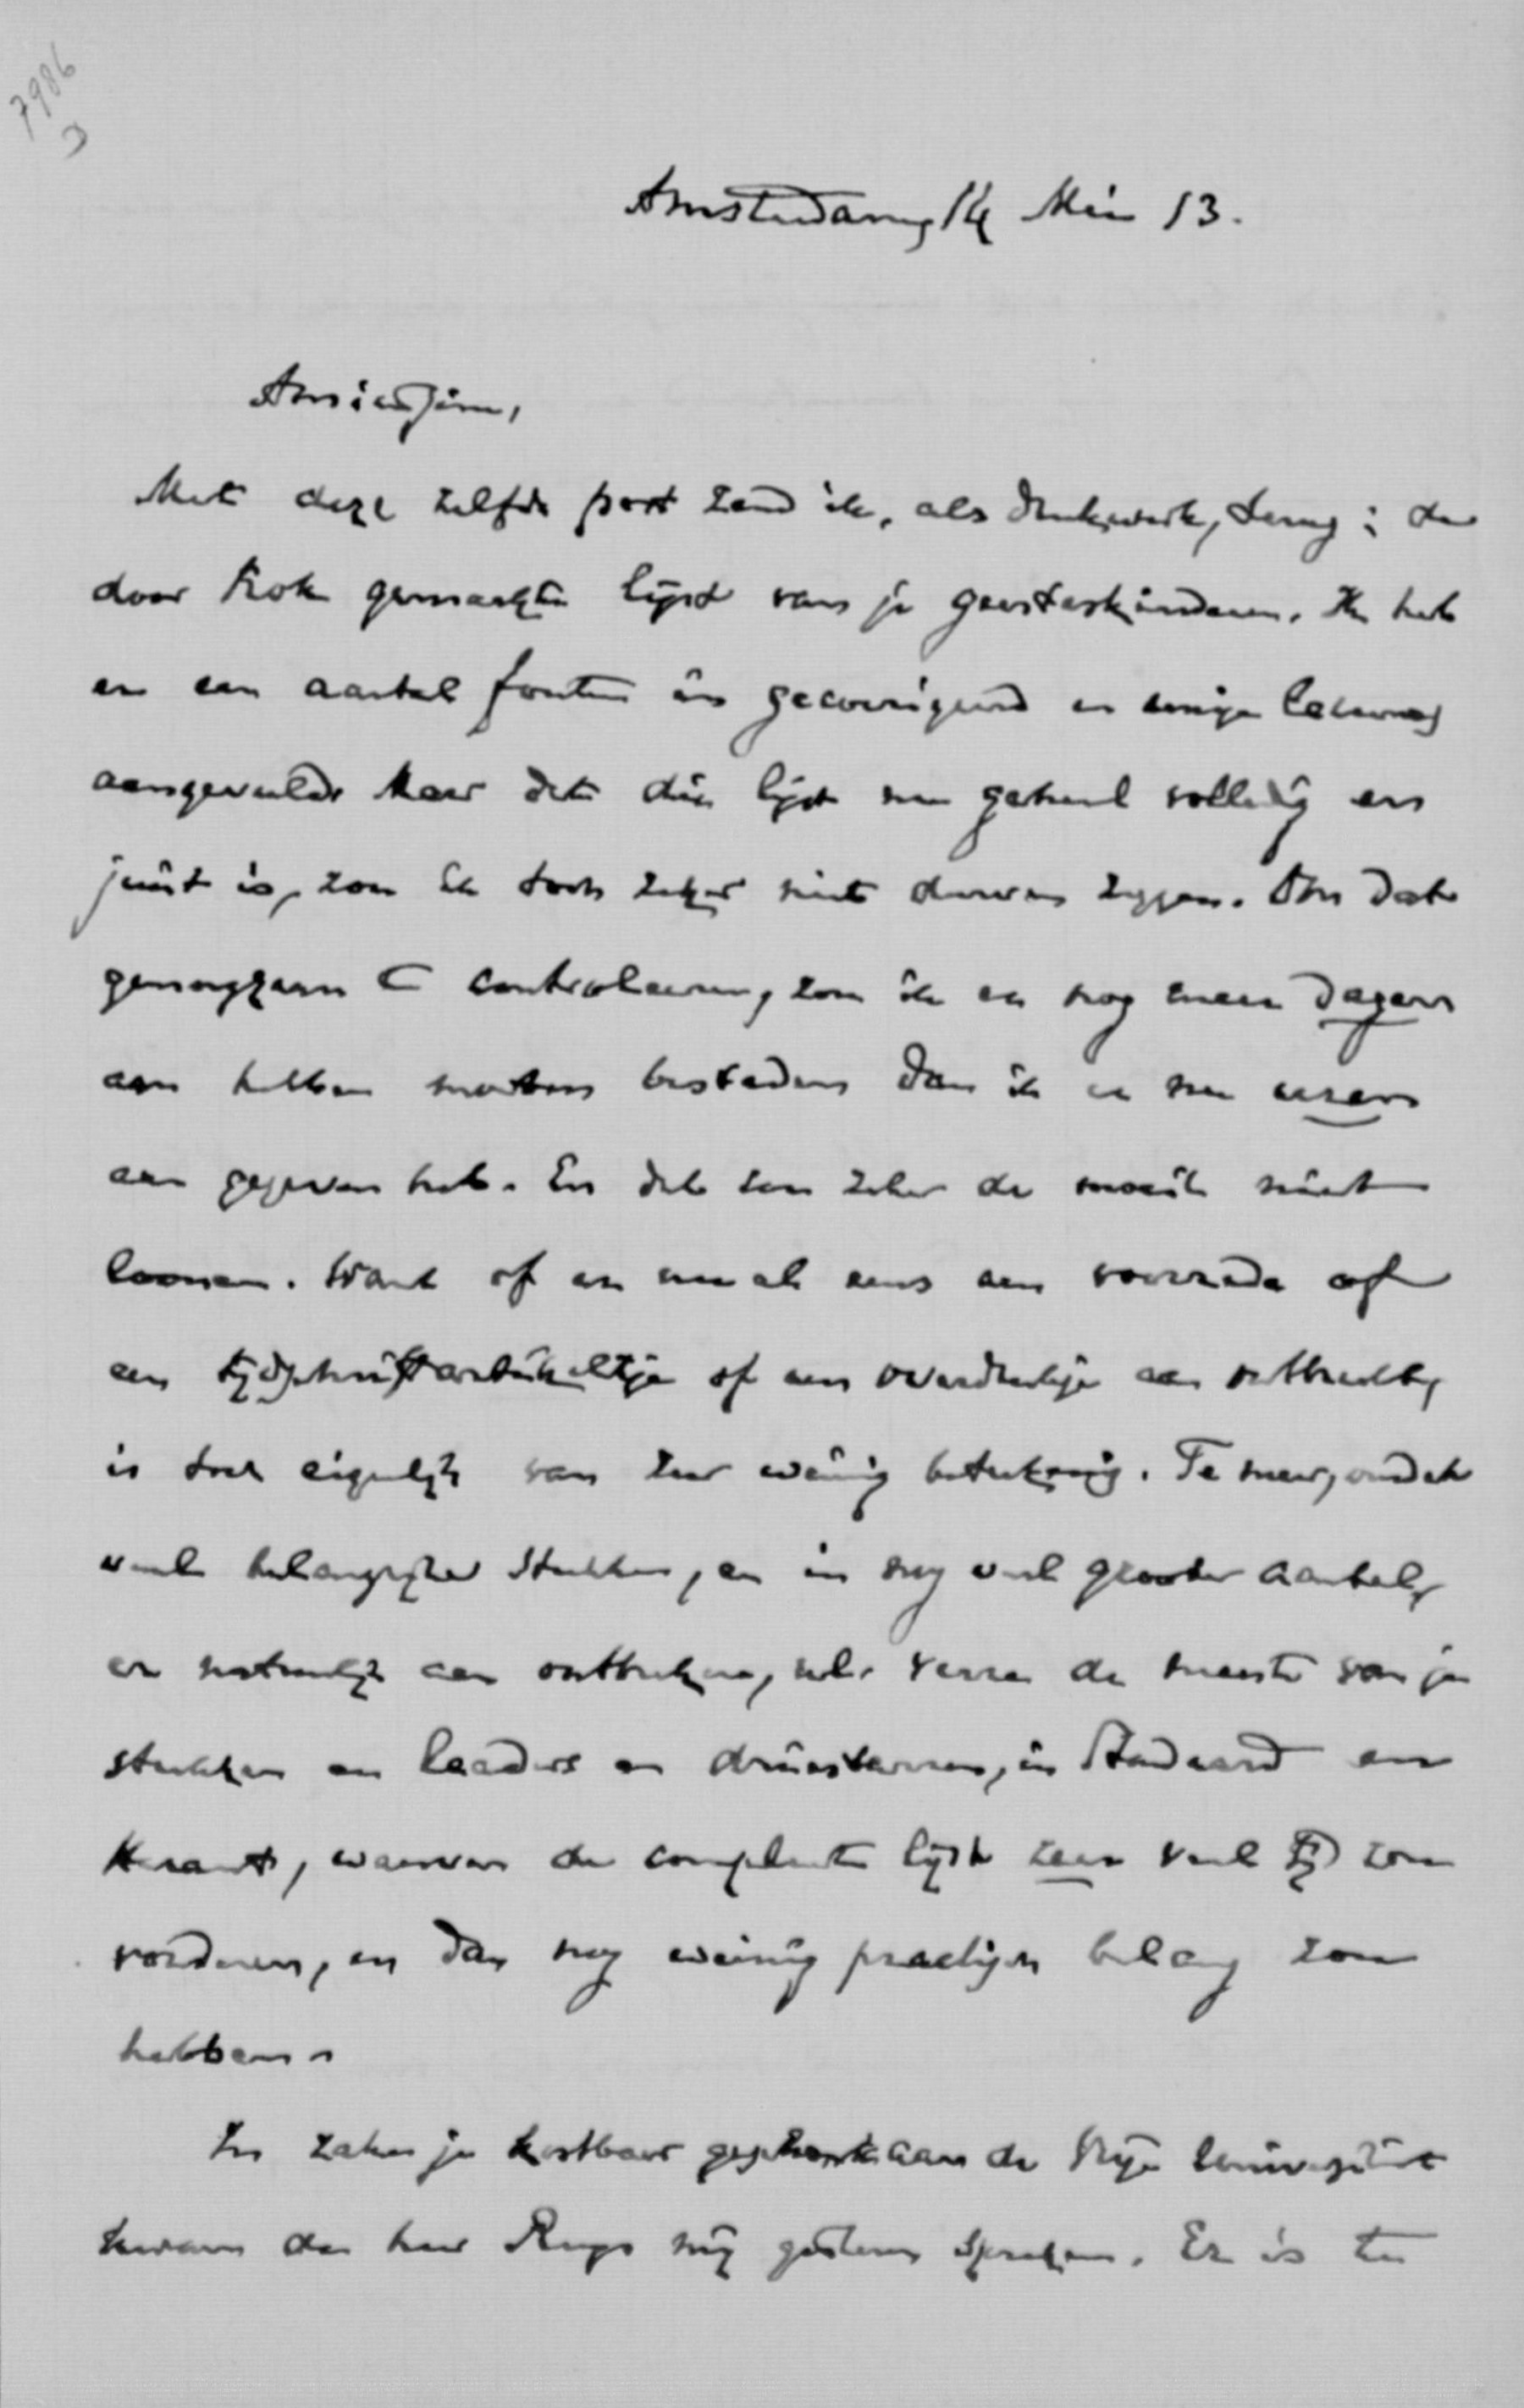 7986
Amsterdam, 14 Mei 13.
Amicissime,
Met deze zelfde post zend ik, als drukwerk, terug: de
door Kok gemaakte lijst van je geesteskinderen. Ik heb
er een aantal fouten in gecorrigeerd en eenige lacunes
aangevuld. Maar dat die lijst nu geheel volledig en
juist is, zou ik toch zeker niet durven zeggen. Om dat
genoegzaam te controleeren, zou ik er nog meer dagen
aan hebben moeten besteden dan ik er nu uren
aan gegeven heb. En dat zou zeker de moeite niet
loonen. Want of er nu al eens een voorrede of
een tijdschriftartikeltje of een overdrukje aan ontbreekt,
is toch eigenlijk van zeer weinig beteekenis. Te meer, omdat
veel belangrijker stukken, en in nog veel grooter aantal,
er natuurlijk aan ontbreken, nl. verre de meeste van je
stukken en leaders en driestarren, in Standaard en
Heraut, waarvan de complete lijst zeer veel tijd zou
vorderen, en dan nog weinig practisch belang zou
hebben.
In zake je kostbaar geschenk aan de Vrije Universiteit
kwam de heer Rugo mij gisteren spreken. Er is te